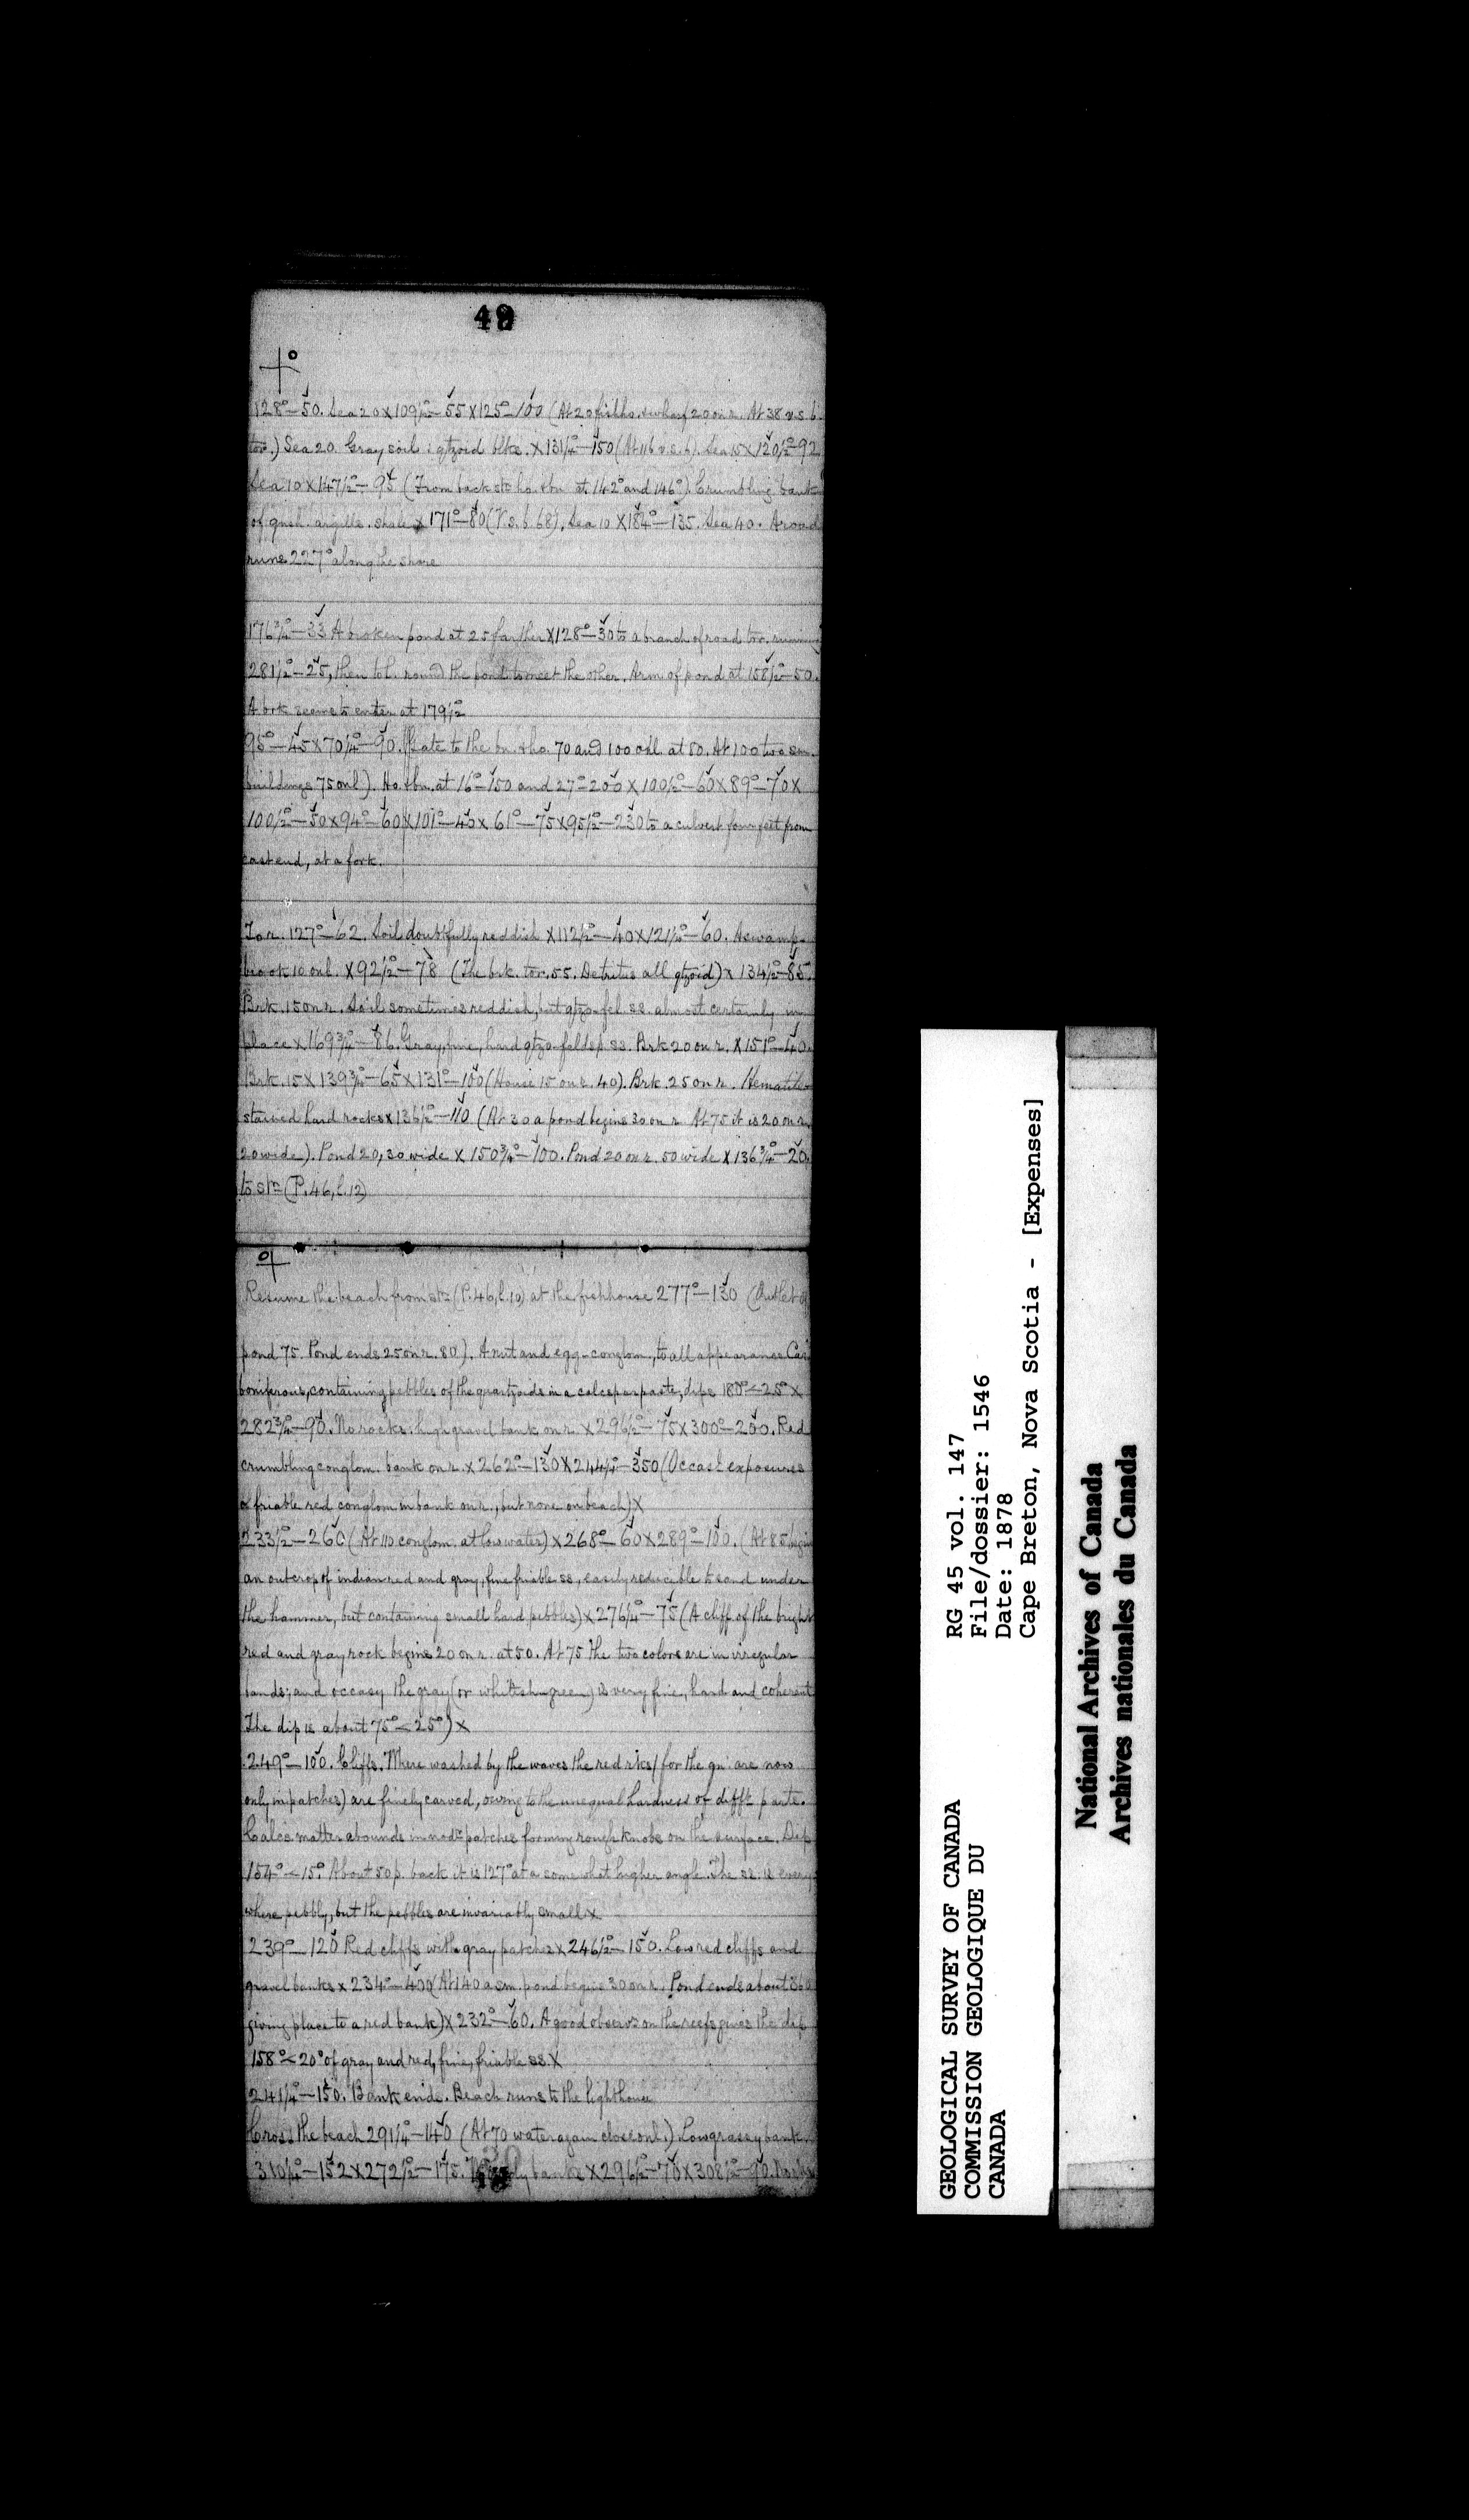 49
128°—50. Sea 20 X 109½°—55 X 125°—100 (At 20 fishho. & wharf 20 on r. At 38 v.s.b.
to r.) Sea 20. Gray soil: qtzoid blks. X 131¼°—150 (At 116 v.s.b.). Sea 15 X 120½°—92
Sea 10 X 147½°—95 (From back stn ho. & bn at 142° and 146°). Crumbling bank
of gnsh. argills. shale X 171°—80 (V.s.b. 68). Sea 10 X 184°—135. Sea 40. A road
runs 227° along the shore
176¾°—33 A broken pond at 25 farther X 128°—30 to a branch of road to r. running
281½°—25, then to l. round the pond to meet the other. Arm of pond at 158½°—50.
A brk seems to enter at 179½°
95°—45 X 70¼°—90. (Gate to the bn. & ho. 70 and 100 on l. at 80. At 100 two sm.
buildings 75 on l). Ho. & bn. at 16°—150 and 27°—200 X 100½°—60 X 89°—70 X
100½°—50 X 94°—60 X 101°—40 X 61°—75 X 95½°—230 to a culvert four feet from
east end, at a fork.
To r. 127°—62. Soil doubtfully reddish X 112½°—40 X 121½°—60. A swamp-
brook 10 on l. X 92½°—78 (The brk. to r. 55. Detritus all qtzoid) X 134½°—85.
Brk. 15 on r. Soil sometimes reddish, but qtzo-fel. ss. almost certainly in
place X 169¾°—86. Gray, fine, hard qtzo-feldsp. ss. Brk 20 on r. X 151°—40.
Brk. 15 X 139¾°—65 X 131°—100 (House 15 on r. 40). Brk. 25 on r. Hematite
stained hard rocks X 136½°—110 (At 30 a pond begins 30 on r. At 75 it is 20 on r.
20 wide). Pond 20, 30 wide X 150¾°—100. Pond 20 on r. 50 wide X 136¾°—20.
to stn (P. 46, l. 12)
Resume the beach from stn (P. 46, l. 10) at the fishhouse 277°—130 (Outlet of
pond 75. Pond ends 25 on r. 80). A nut and egg-conglom., to all appearance Car
boniferous, containing pebbles of the quartzoids in a calcspar paste, dips 180° < 25° X
282¾°—90. No rocks: high gravel bank on r. X 296½°—75 X 300°—200. Red
crumbling conglom. bank on r. X 262°—130 X 244¼°—350 (Occasl. exposures
of friable red conglom in bank on r., but none on beach) X
233½°—260 (At 110 conglom. at low water) X 268°—60 X 289°—100. (At 85 begins
an outcrop of indian red and gray, fine friable ss, easily reducible to sand under
the hammer, but containing small hard pebbles) X 276¼°—75 (A cliff of the bright
red and gray rock begins 20 on r. at 50. At 75 the two colors are in irregular
bands; and occasy. the gray (or whitish-green) is very fine, hard and coherent
The dip is about 75° < 25°) X
249°—100. Cliffs. Where washed by the waves the red rks (for the gn: are now
only in patches) are finely carved, owing to the unequal hardness of difft parts.
Calcs matter abounds in patches forming rough knobs on the surface. Dip
154° < 15°. About 50 p. back it is 127° at a somewhat higher angle. The ss. is every
where pebbly, but the pebbles are invariably small X
239°—120 Red cliffs with gray patches X 246½°—150. Low red cliffs and
gravel banks X 234°—400 (At 140 a sm. pond begins 30 on r. Pond ends about 360
giving place to a red bank) X 232°—60. A good observn on the reefs gives the dip
158° < 20° of gray and red, fine, friable ss. X
241¼°—150. Bank ends. Beach runs to the lighthouse
Cross the beach 291¼°—140 (At 70 water again close on l.) Low grassy bank.
310¼°—152 X 272½°—175. banks X 296½°—70 X 308½°—90.
GEOLOGICAL SURVEY OF CANADA
COMMISSION GEOLOGIQUE DU
CANADA
RG 45 vol. 147
File/dossier: 1546
Date: 1878
Cape Breton, Nova Scotia - [Expenses]
National Archives of Canada
Archives nationales du Canada